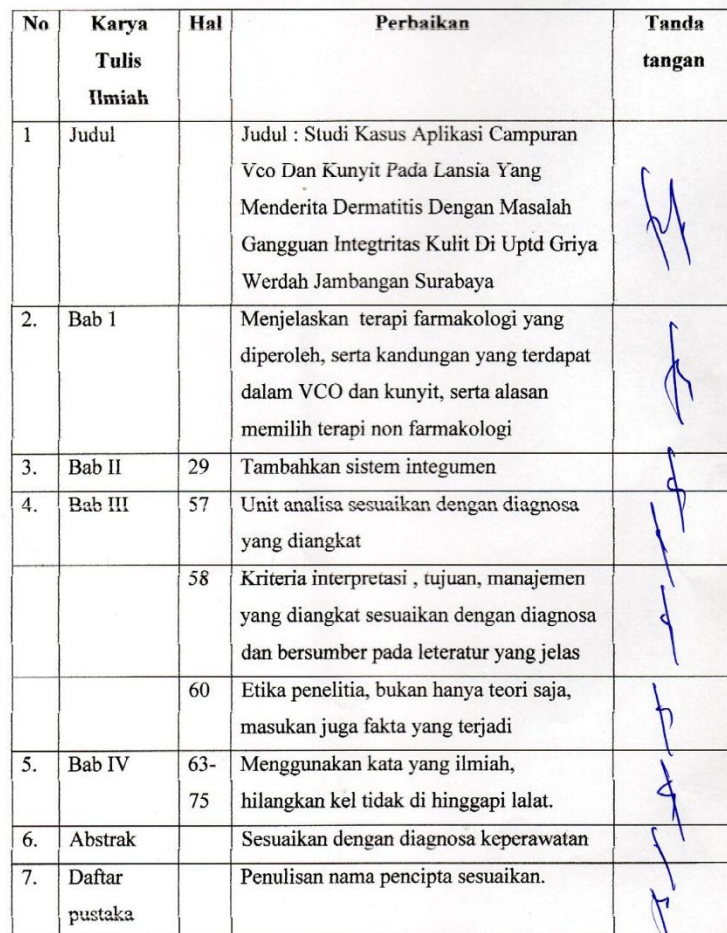 No Karya Hal Perbaikan Tanda
Tulis tangan
Ilmiah
1 Judul Judul : Studi Kasus Aplikasi Campuran
Vco Dan Kunyit Pada Lansia Yang
Menderita Dermatitis Dengan Masalah
Gangguan Integtritas Kulit Di Uptd Griya
Werdah Jambangan Surabaya
2. Bab 1 Menjelaskan terapi farmakologi yang
diperoleh, serta kandungan yang terdapat
dalam VCO dan kunyit, serta alasan
memilih terapi non farmakologi
3. Bab II 29 Tambahkan sistem integumen
4. Bab III 57 Unit analisa sesuaikan dengan diagnosa
yang diangkat
58 Kriteria interpretasi , tujuan, manajemen
yang diangkat sesuaikan dengan diagnosa
dan bersumber pada leteratur yang jelas
60 Etika penelitia, bukan hanya teori saja,
masukan juga fakta yang terjadi
5. Bab IV 63- Menggunakan kata yang ilmiah,
75 hilangkan kel tidak di hinggapi lalat.
6. Abstrak Sesuaikan dengan diagnosa keperawatan
7. Daftar Penulisan nama pencipta sesuaikan.
pustaka